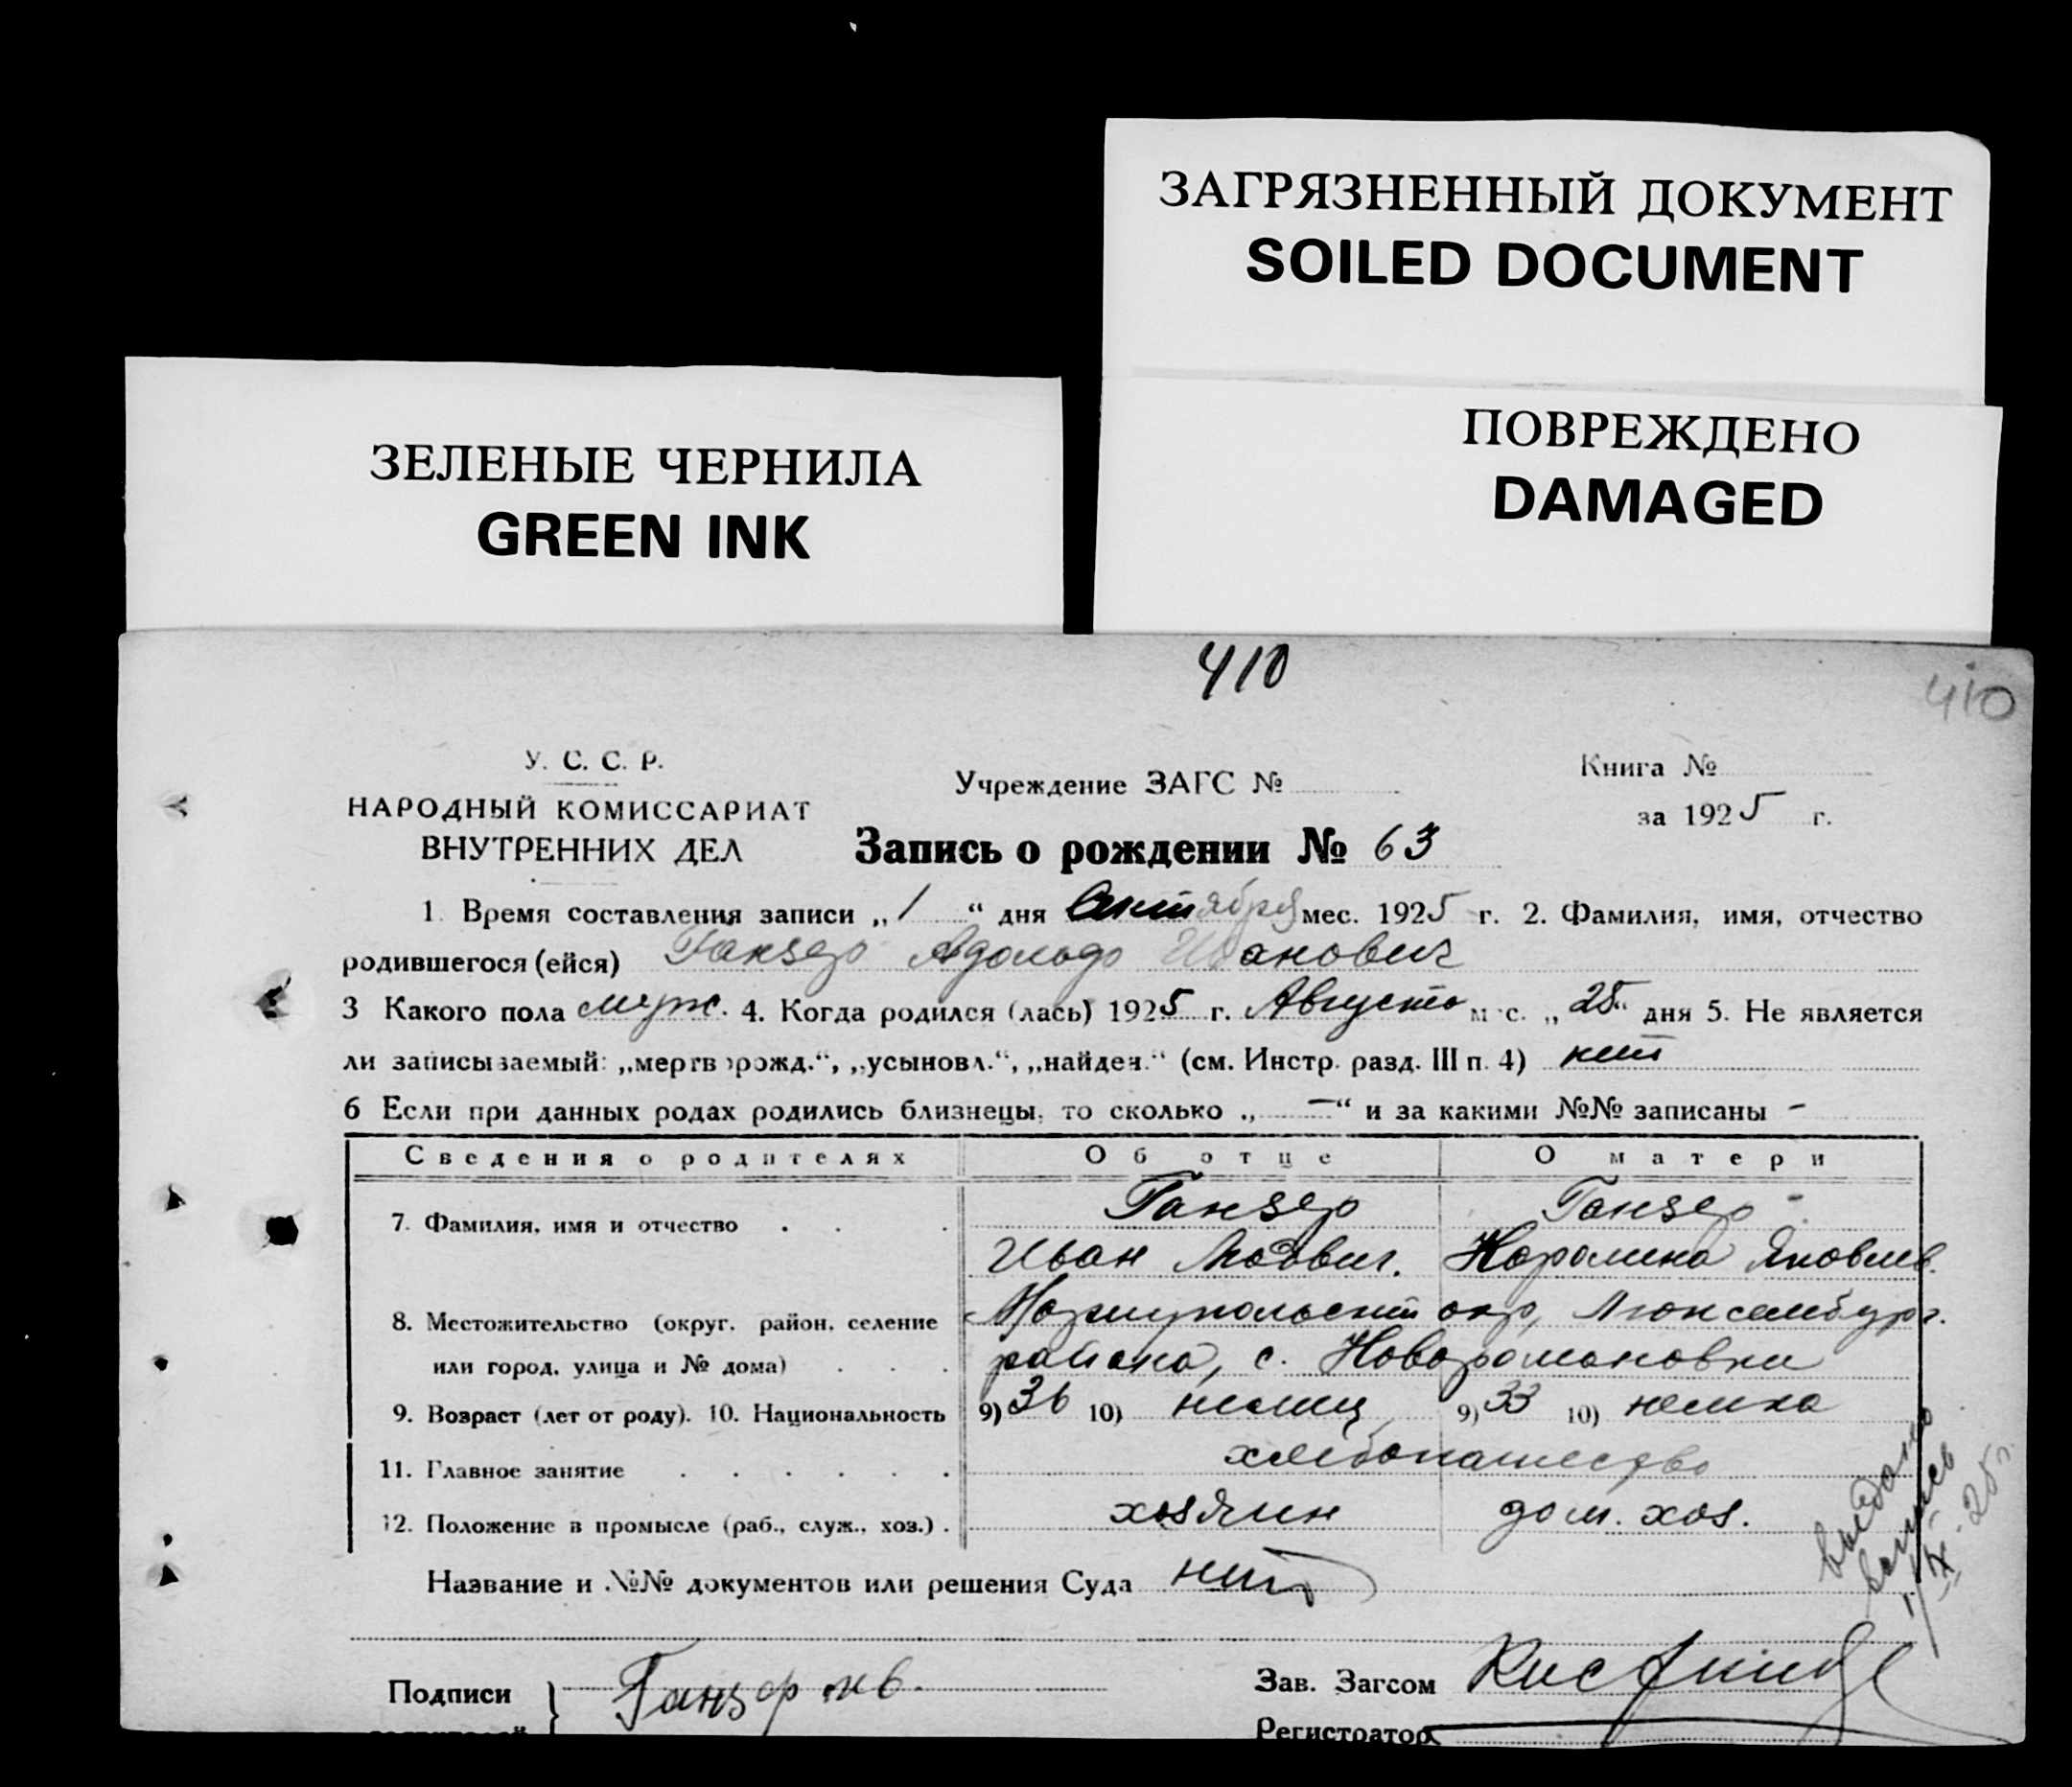 ЗАГРЯЗНЕННЫЙ ДОКУМЕНТ
SOILED DOCUMENT
ЗЕЛЕНЫЕ ЧЕРНИЛА
GREEN INK
ПОВРЕЖДЕНО
DAMAGED
410
410
У. С. С. Р.
НАРОДНЫЙ КОМИССАРИАТ
ВНУТРЕННИХ ДЕЛ
Учреждение ЗАГС №
Книга №
за 1925 г.
Запись о рождении № 63
1. Время составления записи „1“ дня Октября мес. 1925 г. 2. Фамилия, имя, отчество
родившегося (ейся) Ганзер Адольф Иванович
3 Какого пола муж. 4. Когда родился (лась) 1925 г. Августа мес. „25“ дня 5. Не является
ли записываемый: „мертворожд.“, „усыновл.“, „найден.“ (см. Инстр. разд. III п. 4) нет
6 Если при данных родах родились близнецы, то сколько „—“ и за какими №№ записаны -
Сведения о родителях Об отце О матери
7. Фамилия, имя и отчество Ганзер Ганзер
Иван Каролина Яковлев.
8. Местожительство (округ, район, селение Мариупольский окр, Люксембург.
или город, улица и № дома) района, с. Новоромановки
9. Возраст (лет от роду). 10. Национальность 9) 36 10) немец 9) 33 10) немка
11. Главное занятие хлебопашество
12. Положение в промысле (раб., служ., хоз.) хозяин дом. хоз.
Название и №№ документов или решения Суда нет
выдана
Подписи Ганзер
Зав. Загсом
Регистратор